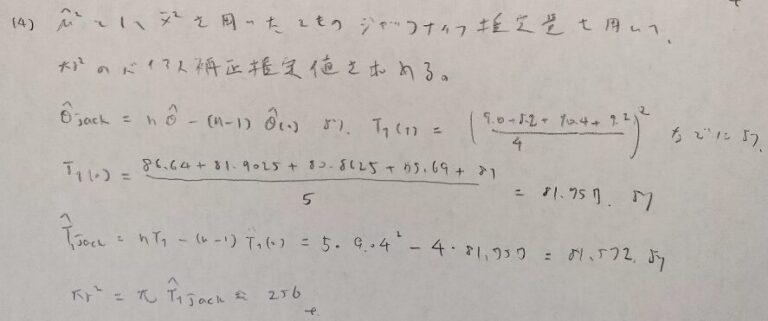 (4) μ̂² として x̄² を用いたときの ジャックナイフ推定量を用いて、
πr² のバイアス補正推定値を求める。
θ̂jack = nθ̂ - (n-1) θ̂(.) より. T₁(1) = ( (9.0+8.2+10.4+9.2) / 4 )² などにより.
T₁(.) = (86.64 + 81.9025 + 80.8625 + 85.69 + 81) / 5 = 81.957. より
T̂₁jack = nT₁ - (n-1) T₁(.) = 5・9.04² - 4・81.957 = 81.572. より
πr² = π T̂₁jack ≈ 256